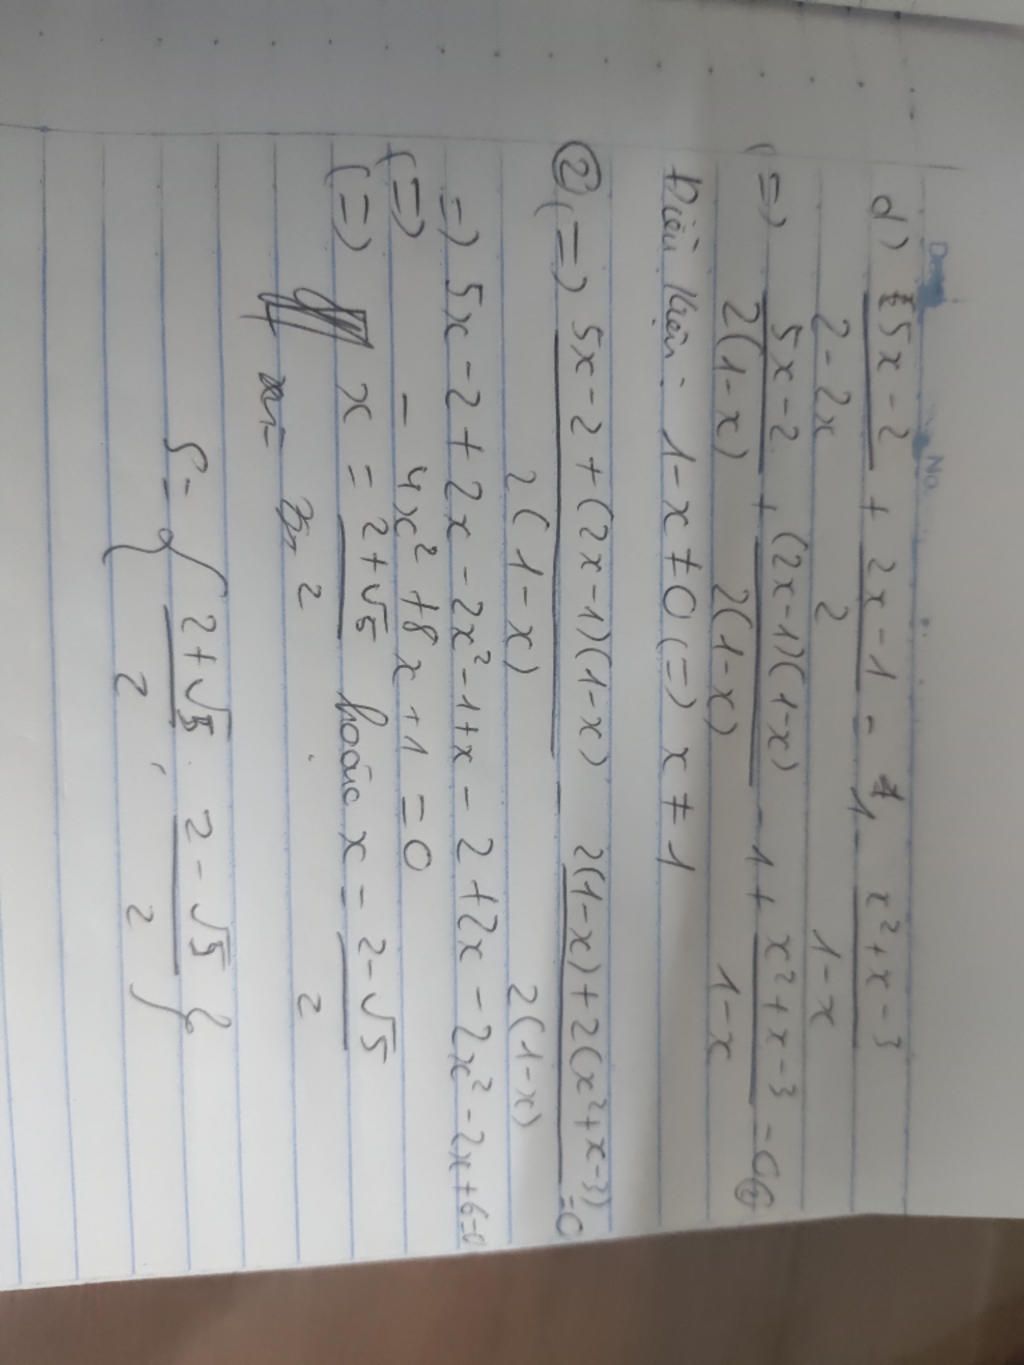 Date No.
d) 5x - 2 / 2 - 2x + 2x - 1 / 2 = 1 - x² + x - 3 / 1 - x
(=) 5x - 2 / 2(1 - x) + (2x - 1)(1 - x) / 2(1 - x) - 1 + x² + x - 3 / 1 - x = 0 (2)
Điều kiện: 1 - x ≠ 0 (=) x ≠ 1
(2) (=) 5x - 2 + (2x - 1)(1 - x) / 2(1 - x) - 2(1 - x) + 2(x² + x - 3) / 2(1 - x) = 0
=) 5x - 2 + 2x - 2x² - 1 + x - 2 + 2x - 2x² - 2x + 6 = 0
(=) - 4x² + 8x + 1 = 0
(=) x = 2 + √5 / 2 hoặc x = 2 - √5 / 2
S = { 2 + √5 / 2 , 2 - √5 / 2 }